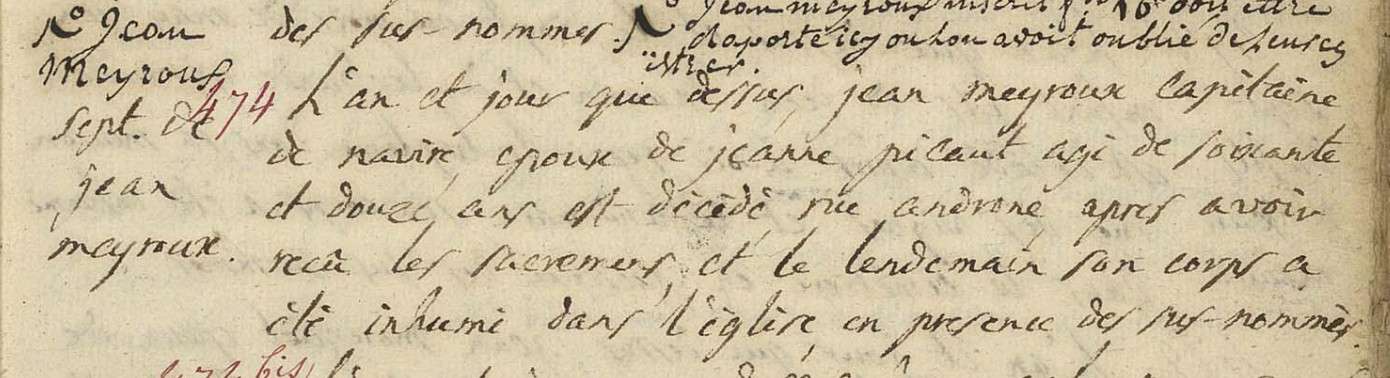 N° Jean
Meyroux
474
sept. de
jean
meyroux.
des sus-nommes. N° Jean meyroux inscrit 16 doit ettre
raporté icy ou lon avoit oublié de
L'an et jour que dessus, jean meyroux capitaine
de navire, epoux de jeanne picaut agé de soixante
et douze ans est décédé, rue androne, apres avoir
recû les sacremens, et le lendemain son corps a
été inhumé dans l'église, en presence des sus-nommés.
bis